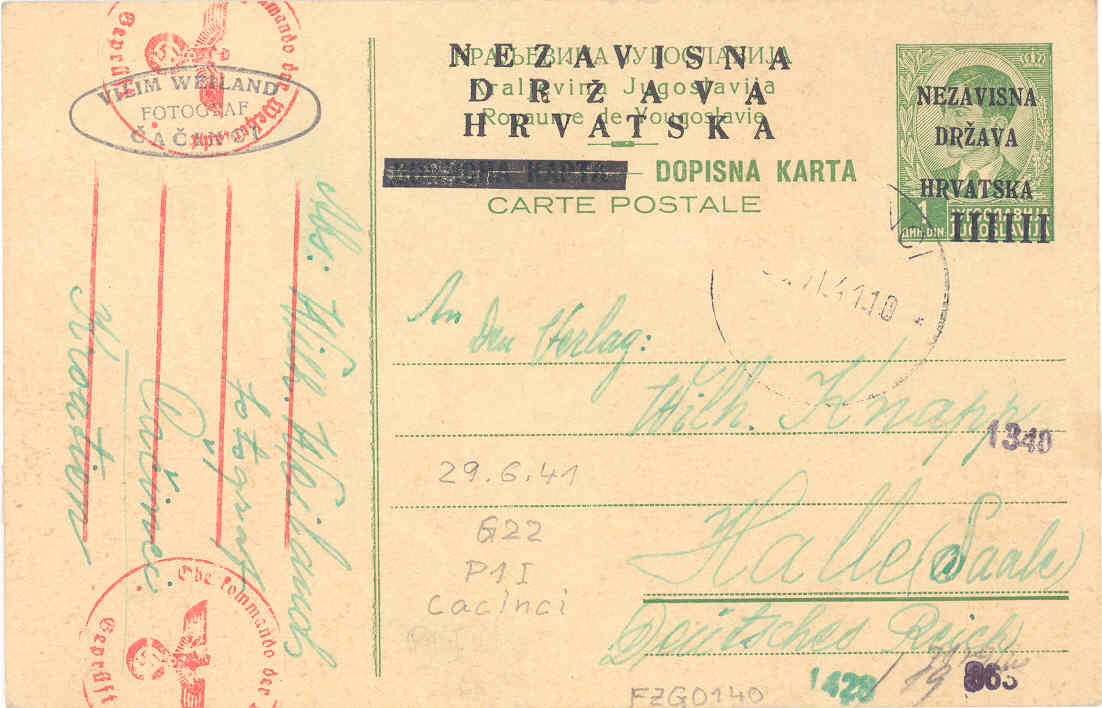 Geprüft
Oberkommando der Wehrmacht
VILIM WEILAND
FOTOGRAF
ČAČINCI
КРАЉЕВИНА ЈУГОСЛАВИЈА
Kraljevina Jugoslavija
Royaume de Yougoslavie
NEZAVISNA
DRŽAVA
HRVATSKA
DOPISNA KARTA
CARTE POSTALE
NEZAVISNA
DRŽAVA
HRVATSKA
1
ДИН. DIN.
ЈУГОСЛАВИЈА
JUGOSLAVIJA
VI.41.10
Abs: Wilh. Weiland
fotograf
Čačinci
Kroatien
An
den Verlag:
Wilh. Knapp
1340
Halle (Saale)
Deutsches Reich
29.6.41
G22
P1I
Cacinci
FZG0140
1428
863
Geprüft
Oberkommando der